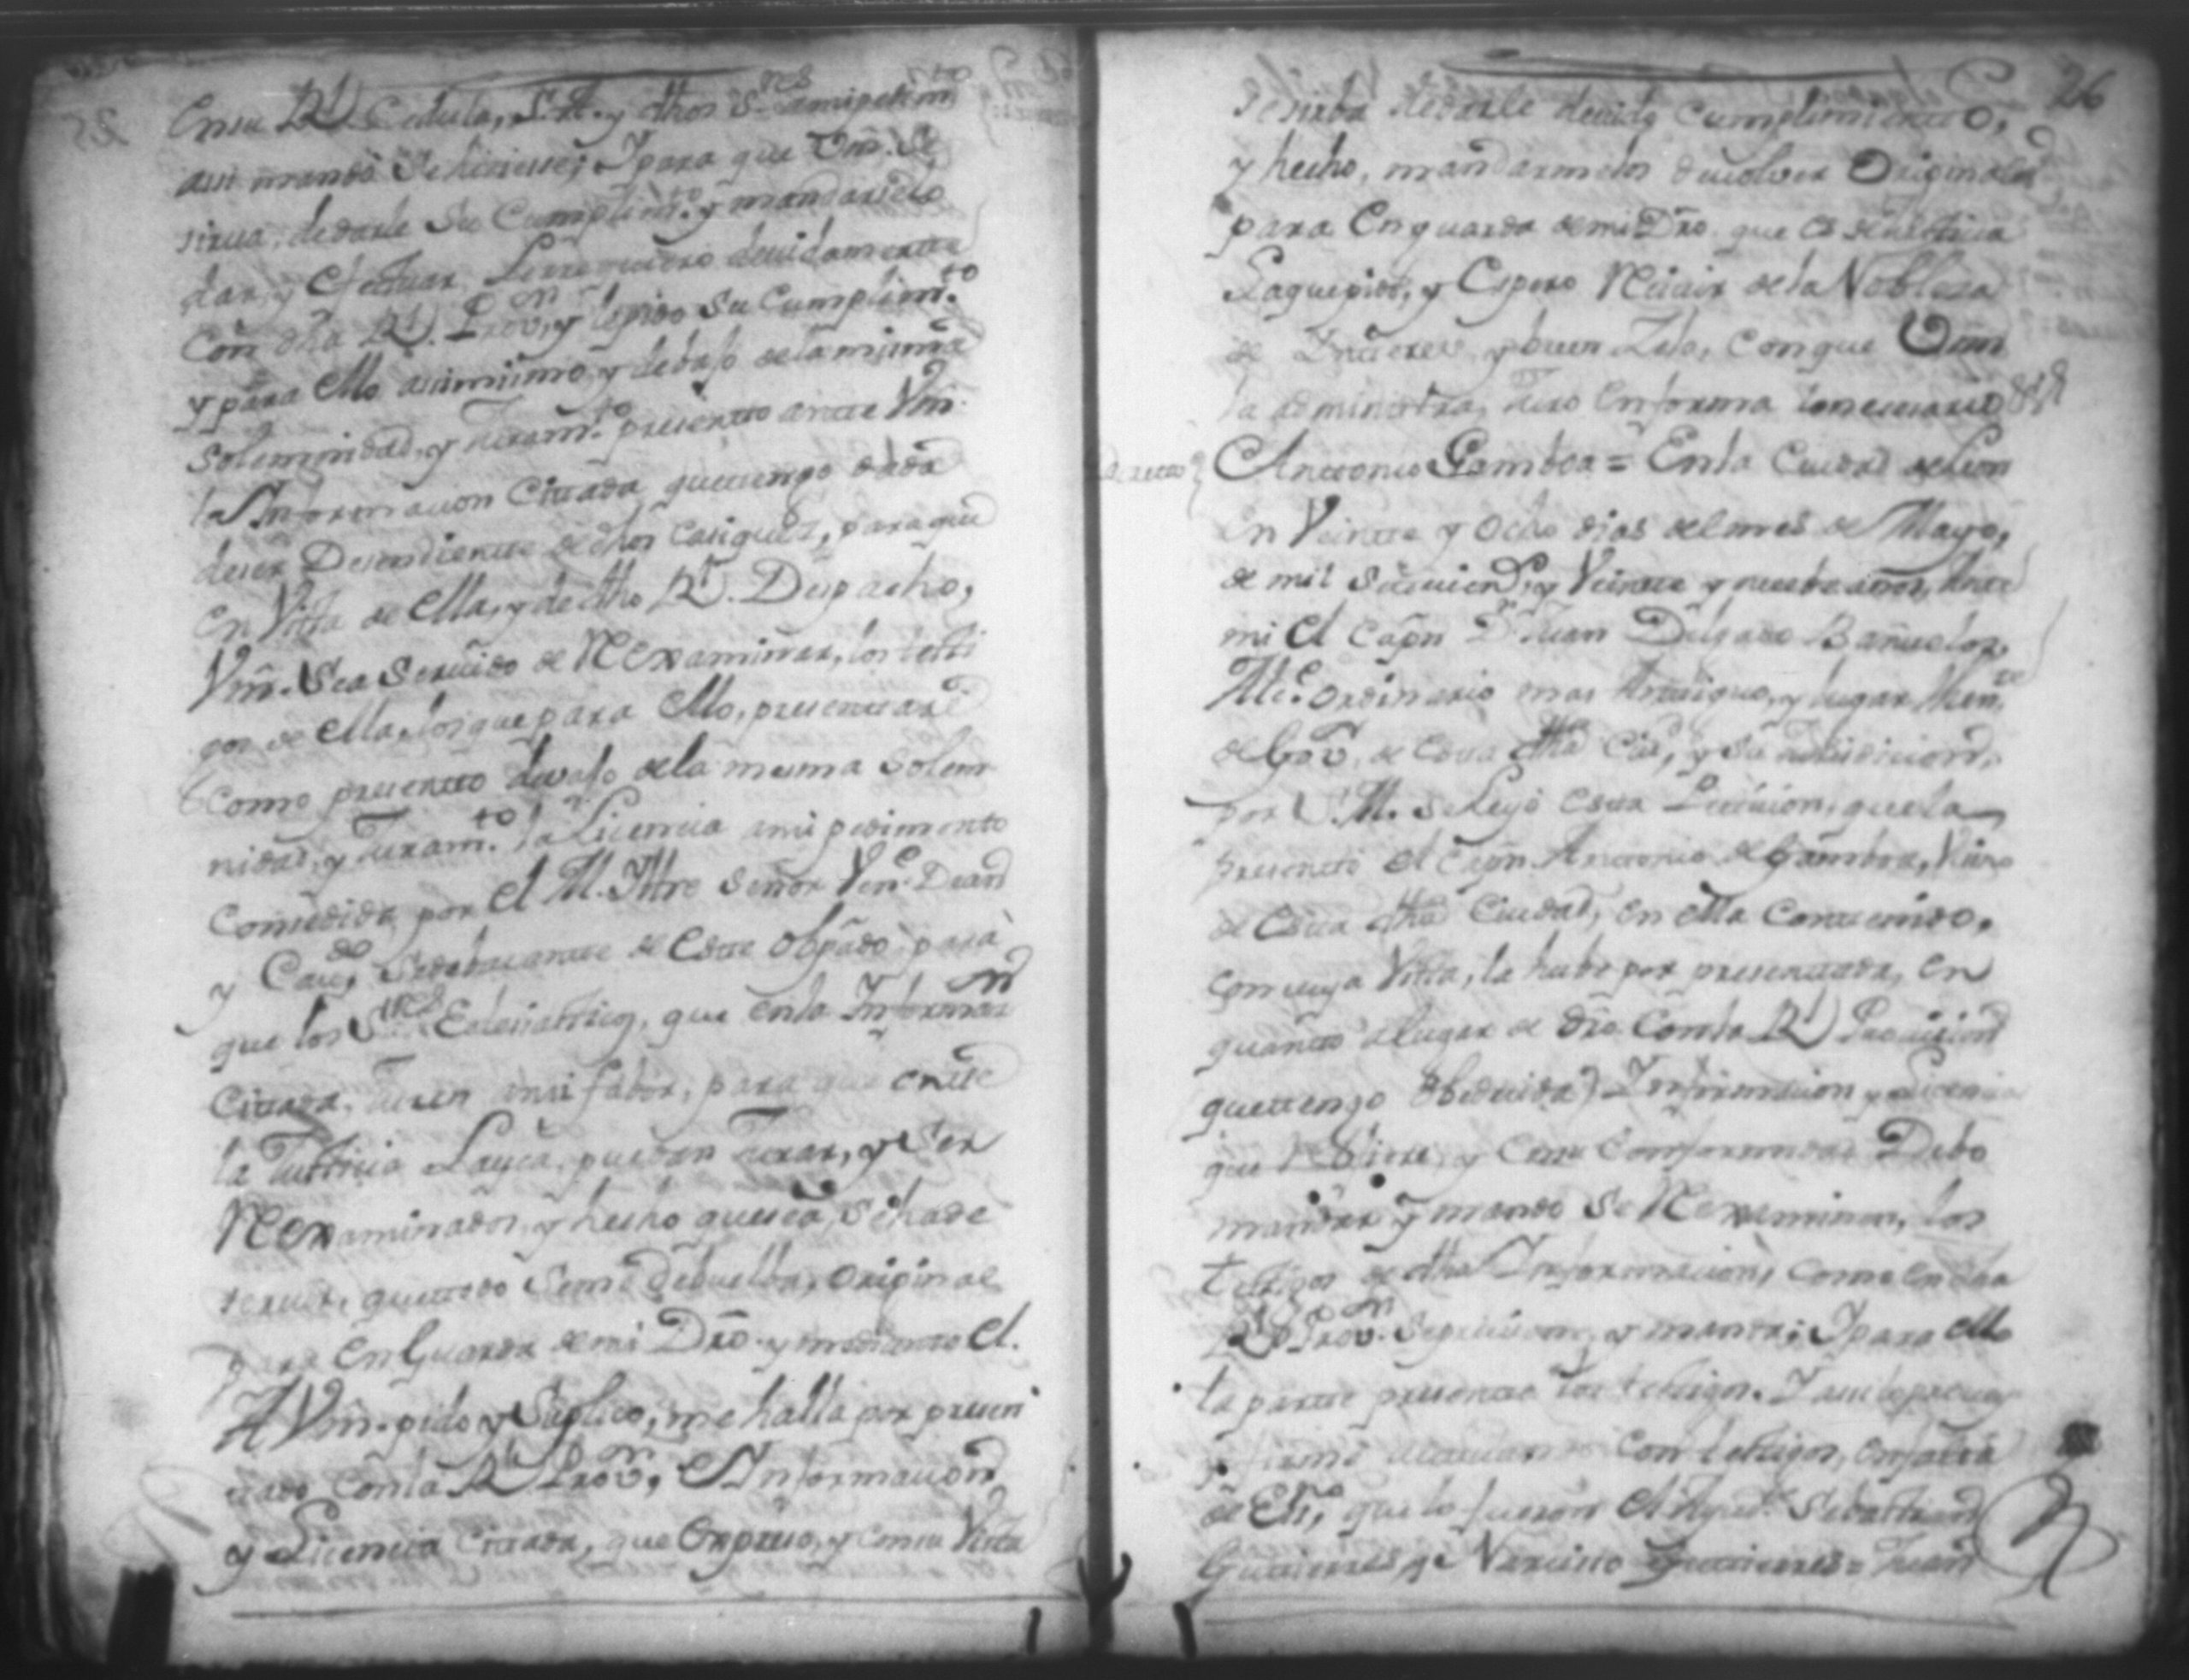 En su Rl. Cedula, S. A. y dhos Sres. a mi pedim.to
assi mando se hiciesse; Y para que Vm. se
sirua, de darle su Cumplim.to y mandarselo
dar, y efectuar, Le requiero deuidamente
Con dha Rl. Prov.on y le pido su Cumplim.to
y para ello assimismo, y debajo de la misma
Solemnidad, y Juram.to presento ante Vm.
la Informacion Citada que tengo dada
de ser Desendiente de dhos Casiques, para que
en Vista de ella, y de dho Rl. Despacho,
Vm. Sea Seruido de Reexaminar, los testi
gos de ella, los que para ello, presentaré
Como presento devajo de la misma Solem
nidad, y Juram.to la Licencia a mi pedimento
Consedida por el M. Iltre Señor Ven.e Dean
y Cau.do Sedebacante de este Obpado, para
que los Sres. Eclesiasticos, que en la Informaz.on
Citada, Juren a mi fabor, para que ante
la Justicia Layca, puedan Jurar, y Ser
Reexaminados, y hecho que sea, se ha de
seruir, que todo se me debuelba, Original
para en Guarda de mi Dro. y mediante el.
A Vm. pido y Suplico, me halla por presen
tado Con la Rl. Prov.on, e Informacion,
y Licencia Citada, que Expreso, y Con su Vista
26
se sirba de darle deuido Cumplimiento,
y hecho, mandarmelos deuolver Originales
para en guarda de mi Dro. que es de Justicia
La que pido, y Espero Reciuir de la Noblesa
de y buen Zelo, con que Vm.
la administra, Juro en forma lo necesario &a
Decreto
Anttonio Gamboa = En la Ciudad de Leon
en Veinte y Ocho dias del mes de Mayo,
de mil Setecien.s y Veinte y nuebe años, Ante
mi el Capn. Dn. Juan Delgado Bañuelos,
Alc.e Ordinario mas Antiguo, y lugar then.te
de Gov.or de esta dha Ciu.d, y su Jurisdicion,
por S. M. se Leyó esta Peticion, que la
presentó el Capn. Antonio de Gamboa, Vezino
de esta dha Ciudad, en ella Contenido,
con cuya Vista, la hube por presentada, en
quanto a lugar de dro. Con la Rl. Prouicion
que tengo Obedecida) Informacion y Licencia
que refiere, y en su Conformidad Debo
mandar y mando se Reexaminen, los
testigos de dha Informacion, como en dha
Rl. Prov.on se preuiene, y manda; Y para ello
la parte presente los testigos. Y assi lo probey
y firmé actuando Con testigos, en falta
de Es.no que lo fueron el Sebastian
Gutierres, y Narciso Gutierres = Juan